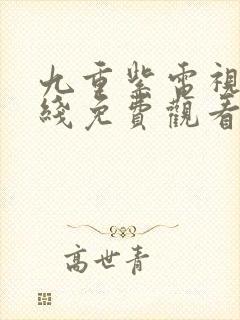 九重紫電視
綫免費觀看
高世青